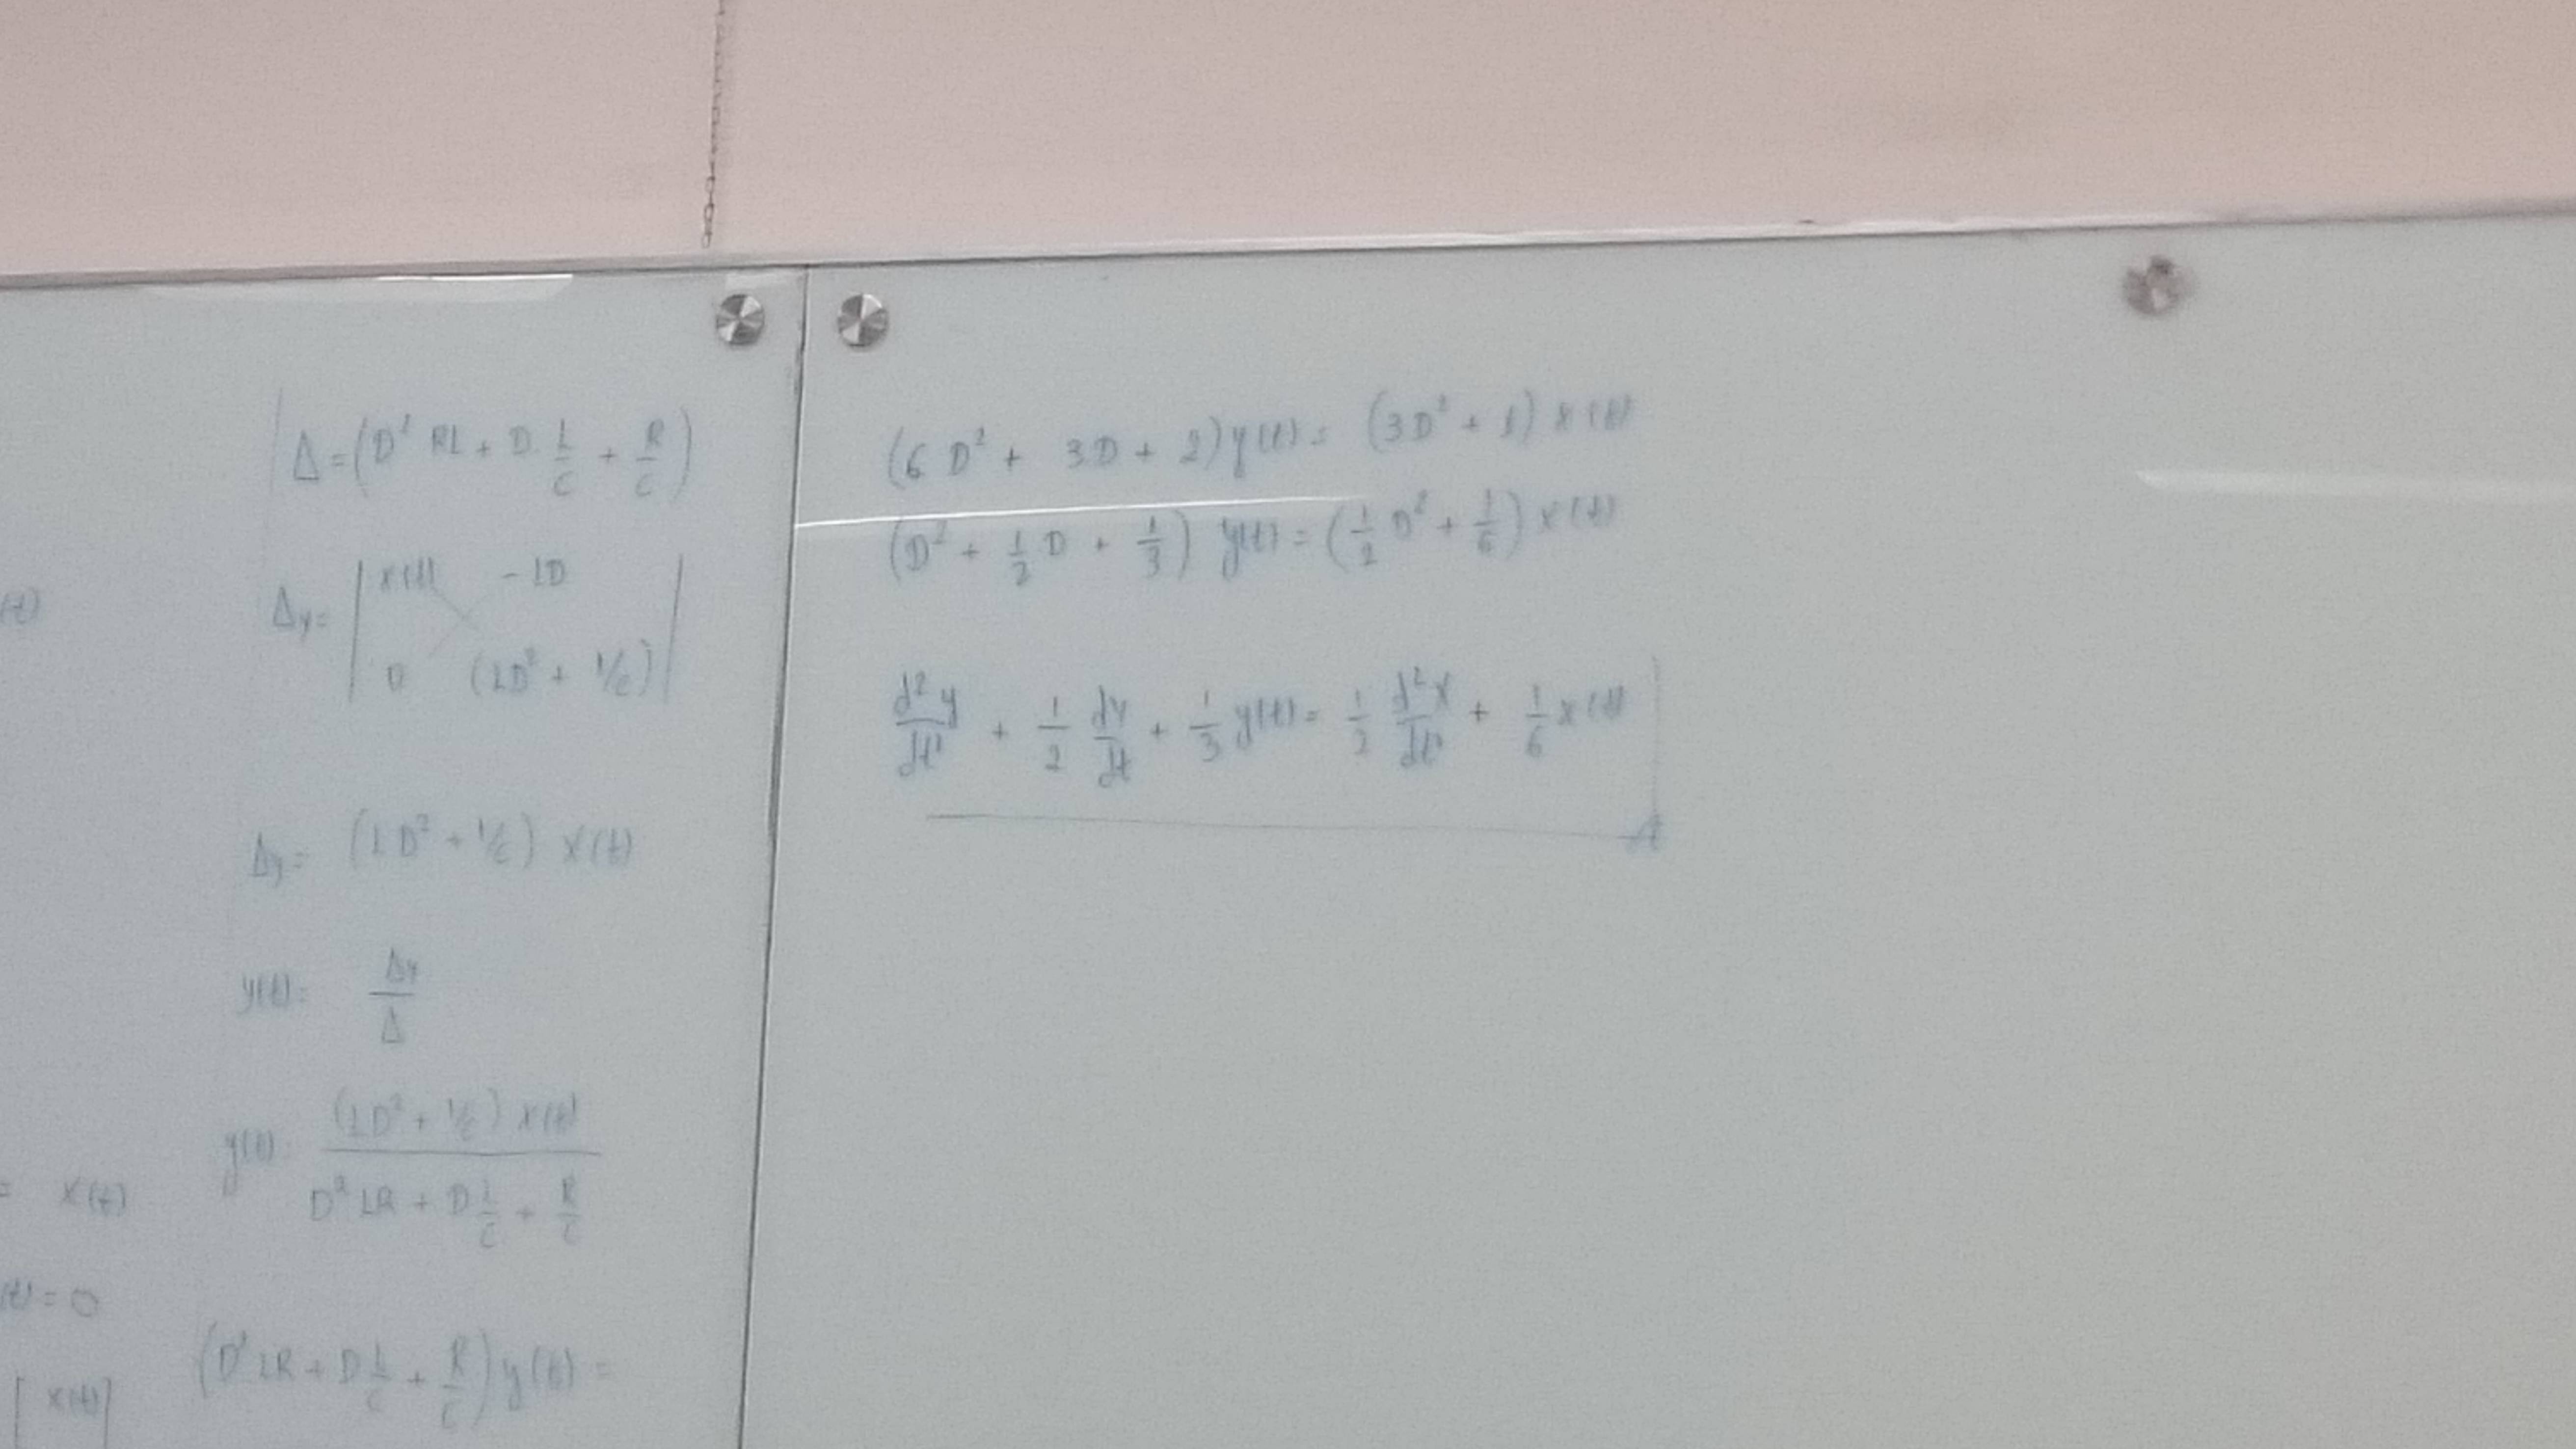 (t)
= x(t)
(t) = 0
[ x(t) ]
Δ = (D² RL + D L/C + R/C)
Δy = | x(t) -LD |
| 0 (LD² + 1/C) |
Δy = (LD² + 1/C) x(t)
y(t) = Δy/Δ
y(t) = (LD² + 1/C) x(t) / D² LR + D L/C + R/C
(D² LR + D L/C + R/C) y(t) =
(6 D² + 3D + 2) y(t) = (3D² + 1) x(t)
(D² + 1/2 D + 1/3) y(t) = (1/2 D² + 1/6) x(t)
d²y/dt² + 1/2 dy/dt + 1/3 y(t) = 1/2 d²x/dt² + 1/6 x(t)